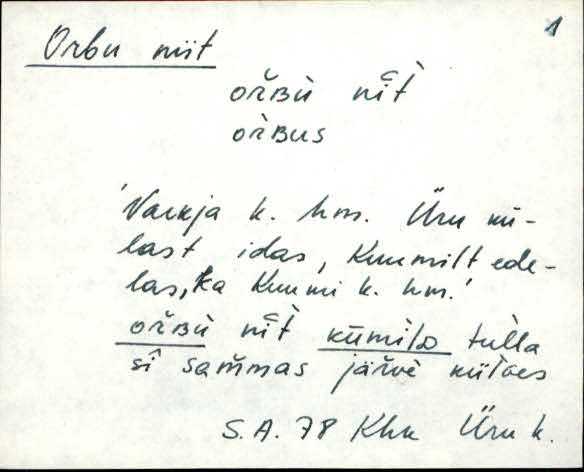 1
Orbu niit
ořʙù nīt̀
òrʙus
'Varkja k. hm. Üru kü-
last idas, Kuumilt ede-
las, ka Kuumi k. hm.'
ořʙù nīt̀ kūmilᴅ tùlla
sī sam̆mas jäřvè nītᴅes
S.A. 78 Khk Üru k.